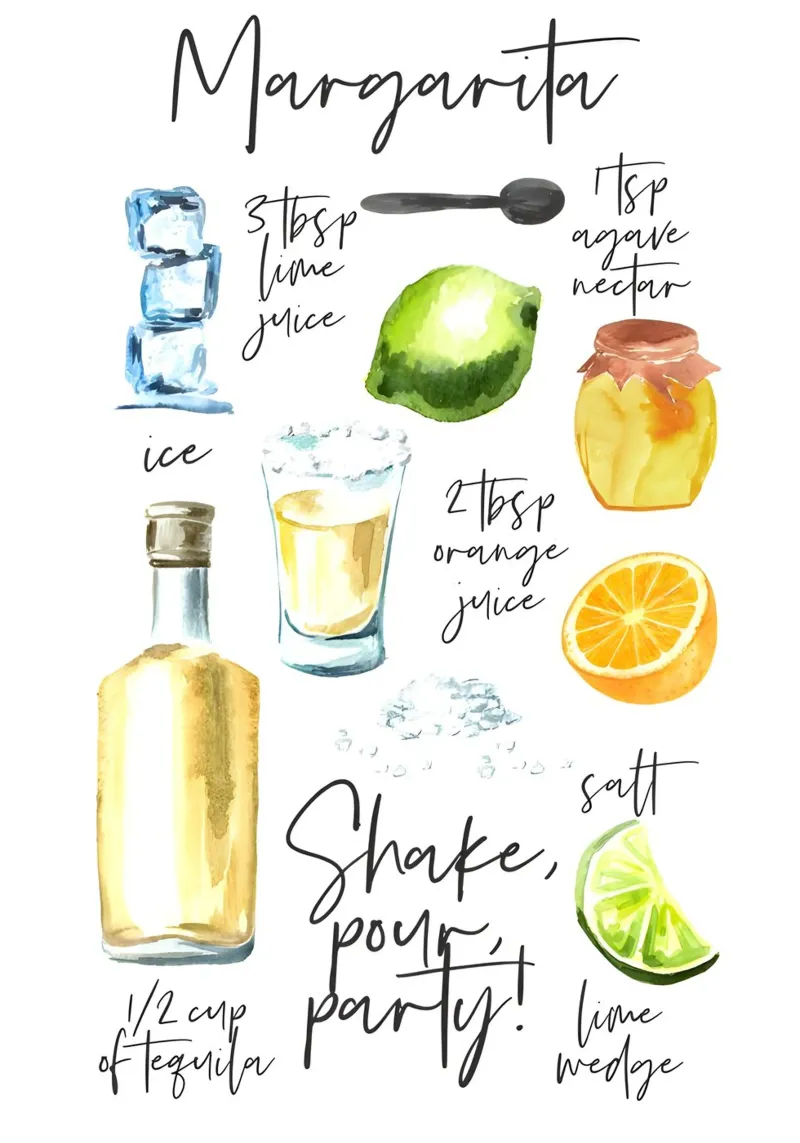 Margarita
3 tbsp
lime
juice
1 tsp
agave
nectar
ice
2 tbsp
orange
juice
salt
Shake,
pour,
party!
1/2 cup
of tequila
lime
wedge